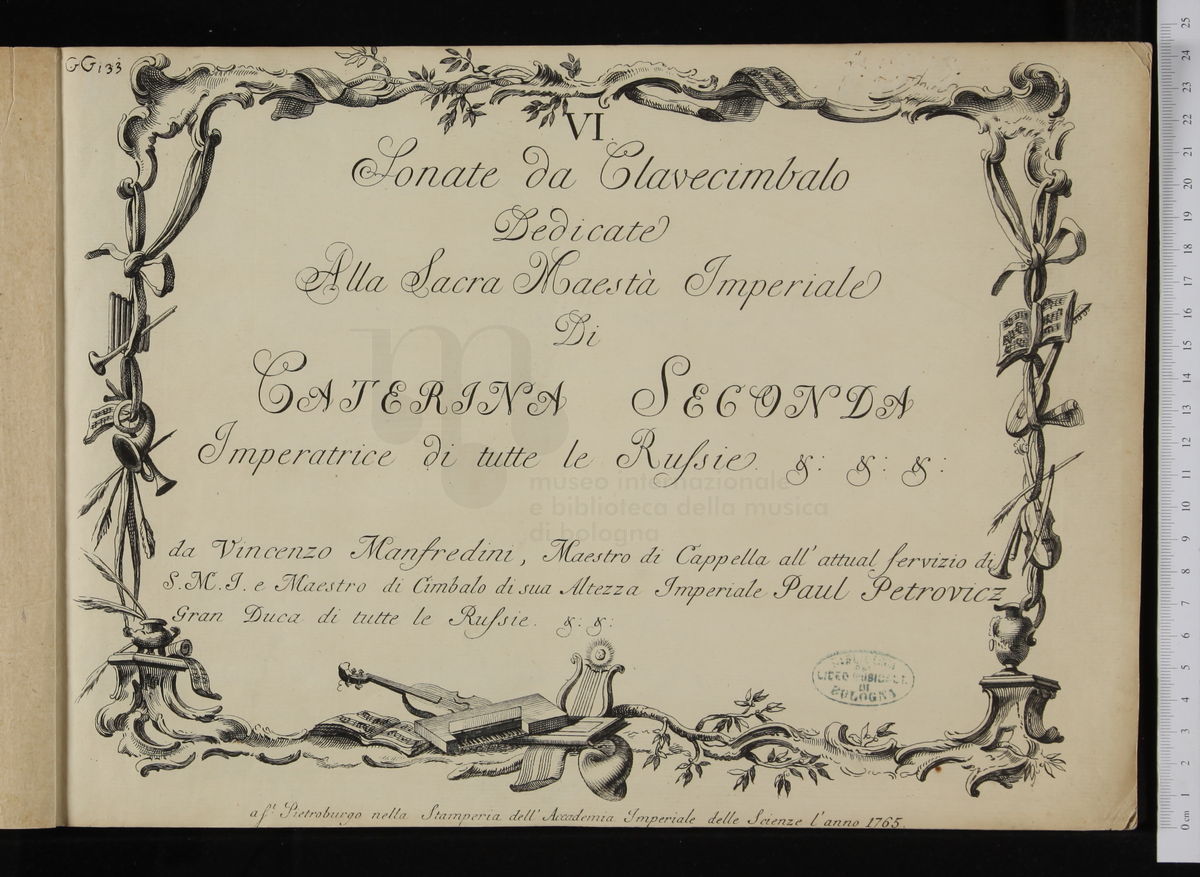 GG133
VI
Sonate da Clavecimbalo
Dedicate
Alla Sacra Maestà Imperiale
Di
CATERINA SECONDA
Imperatrice di tutte le Rufsie. &: &: &:
museo internazionale
e biblioteca della musica
di bologna
da Vincenzo Manfredini, Maestro di Cappella all' attual servizio di
S.M.I. e Maestro di Cimbalo di sua Altezza Imperiale Paul Petrovicz
Gran Duca di tutte le Rufsie. &: &:
LICEO MUSICALE
DI
BOLOGNA
a St. Pietroburgo nella Stamperia dell' Accademia Imperiale delle Scienze l'anno 1765.
25
24
23
22
21
20
19
18
17
16
15
14
13
12
11
10
9
8
7
6
5
4
3
2
1
0 cm